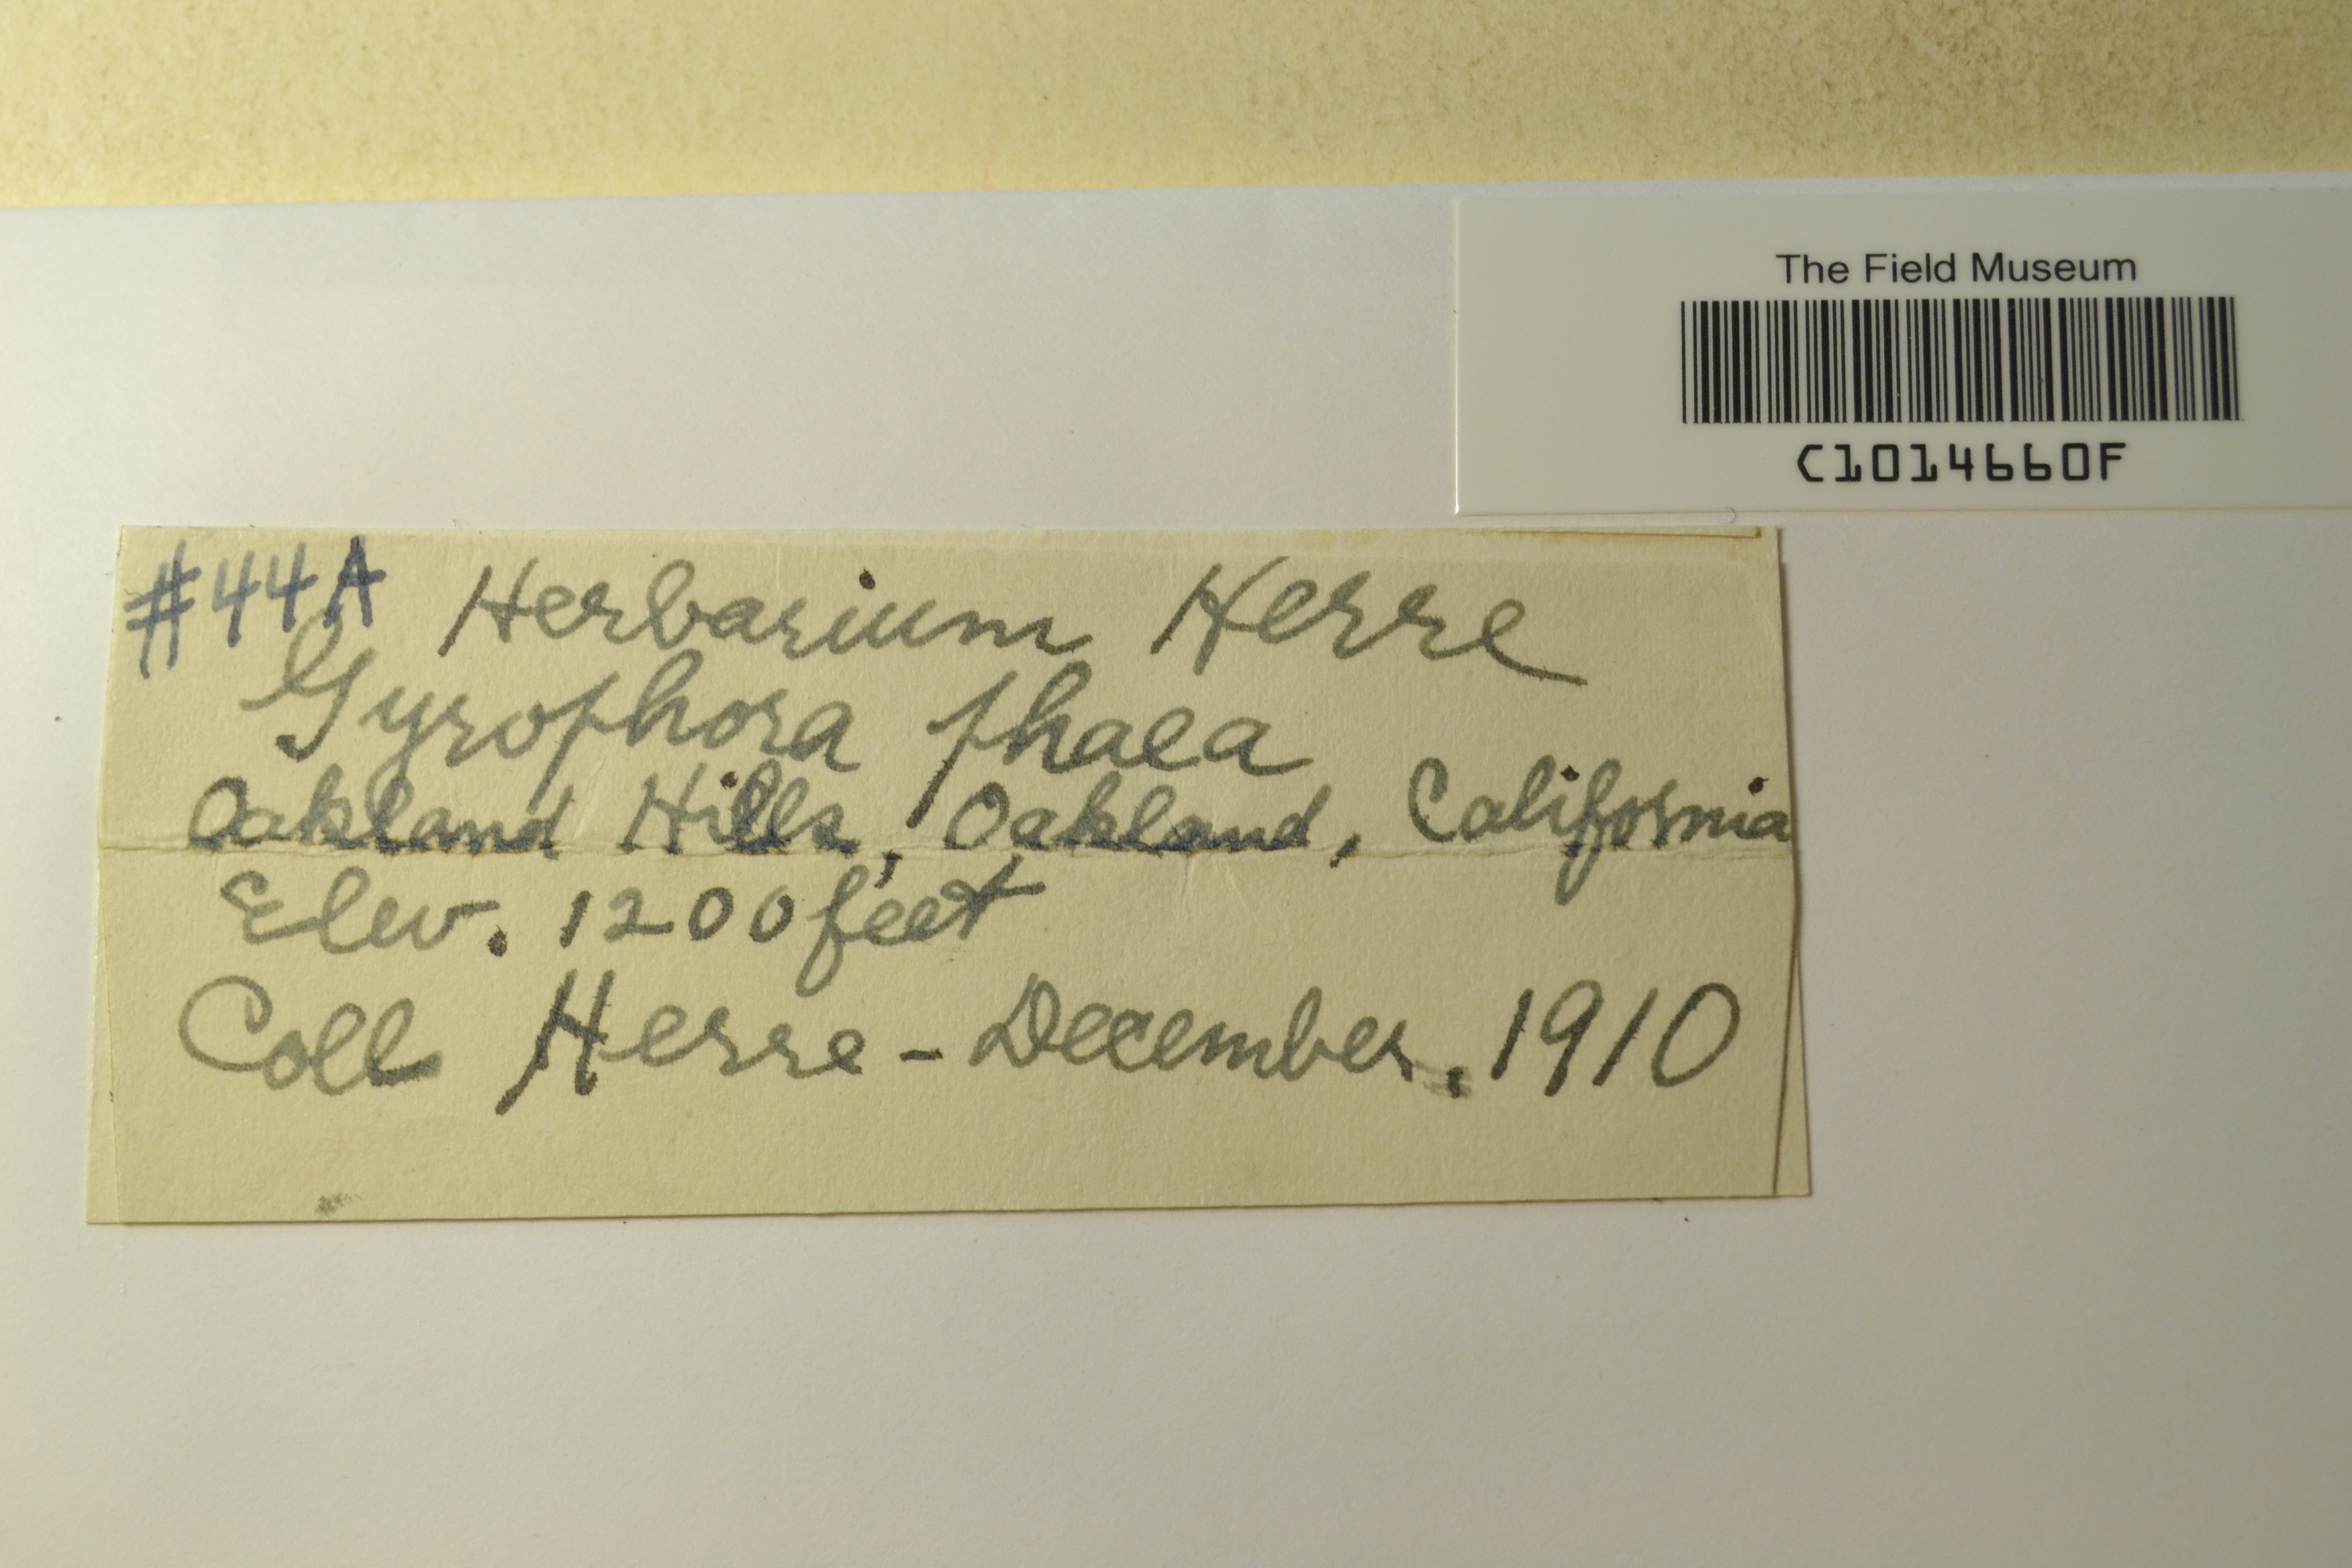 The Field Museum
C1014660F
#44A Herbarium Herre
Gyrophora phaea
Oakland Hills, Oakland, California
Elev. 1200 feet
Coll Herre - December, 1910